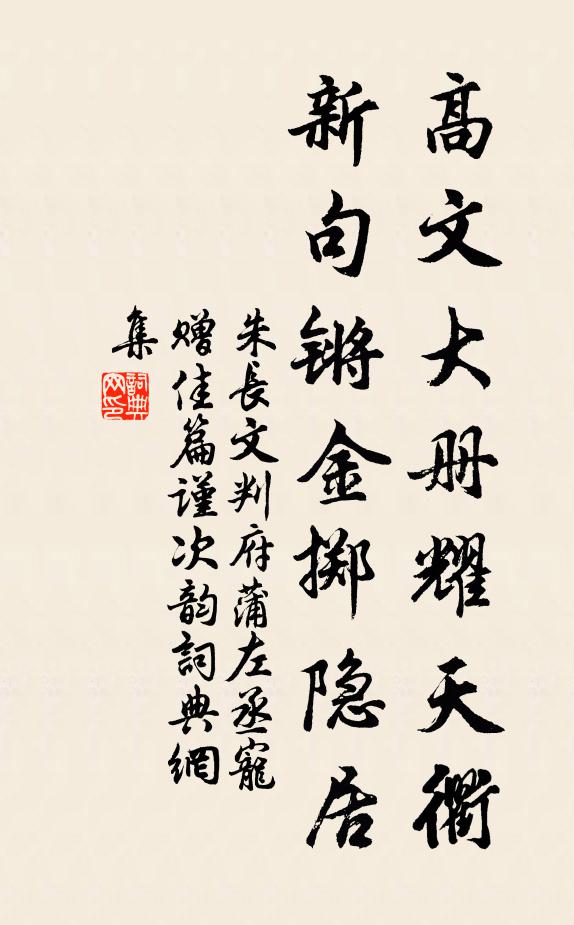 高文大册耀天衢
新句锵金掷隐居
朱長文判府蒲左丞寵
赠佳篇谨次韵詞典網
集
詞典
网印